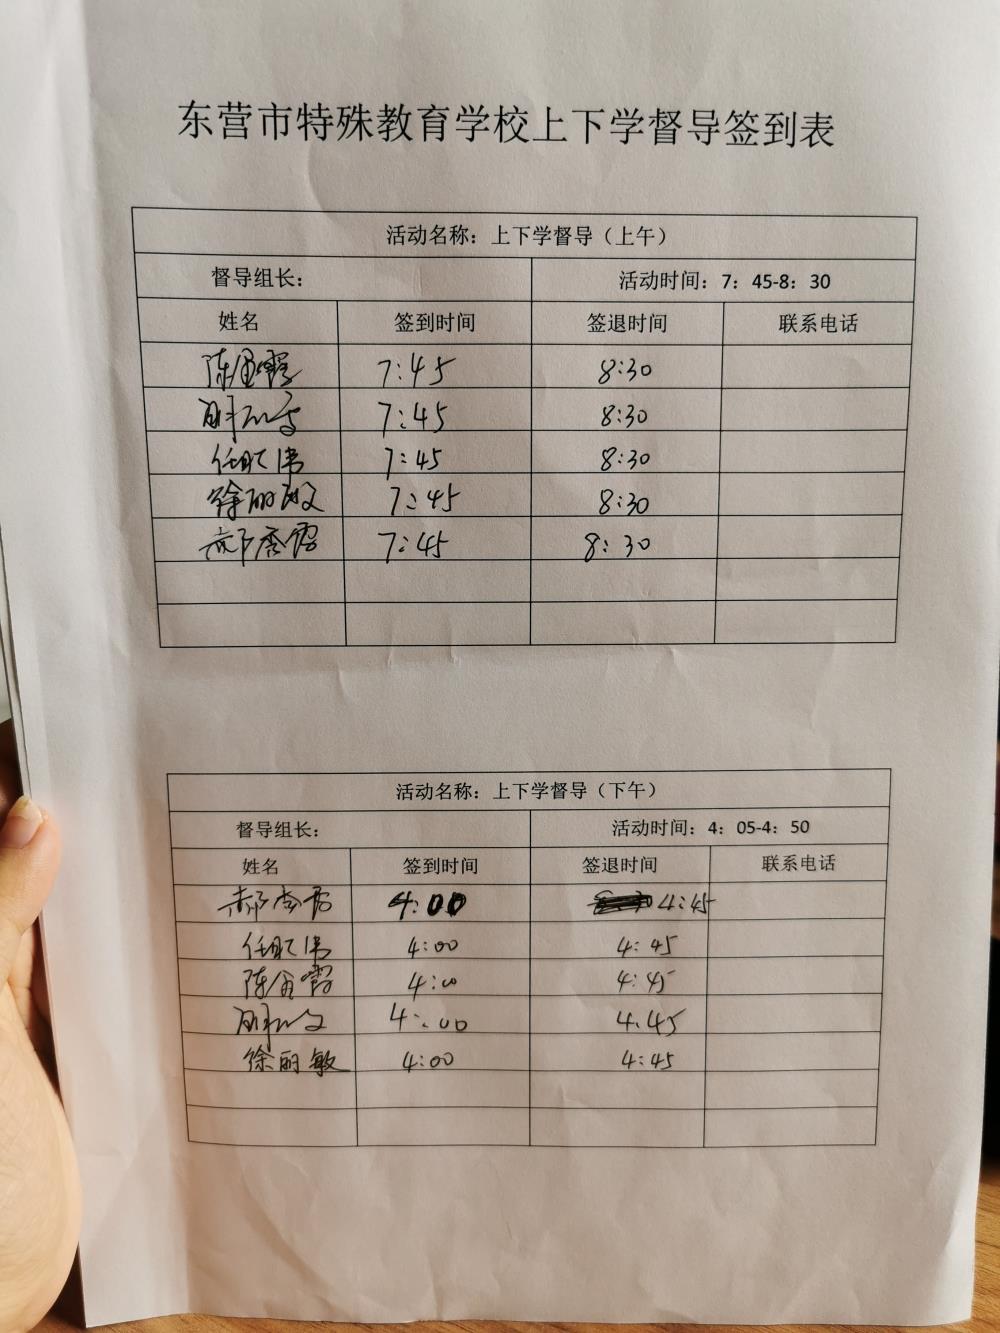 东营市特殊教育学校上下学督导签到表
活动名称：上下学督导（上午）
督导组长： 活动时间：7：45-8：30
姓名 签到时间 签退时间 联系电话
7:45 8:30
7:45 8:30
7:45 8:30
徐丽敏 7:45 8:30
7:45 8:30
活动名称：上下学督导（下午）
督导组长： 活动时间：4：05-4：50
姓名 签到时间 签退时间 联系电话
4:00 4:45
4:00 4:45
4:00 4:45
4:00 4.45
徐丽敏 4:00 4:45